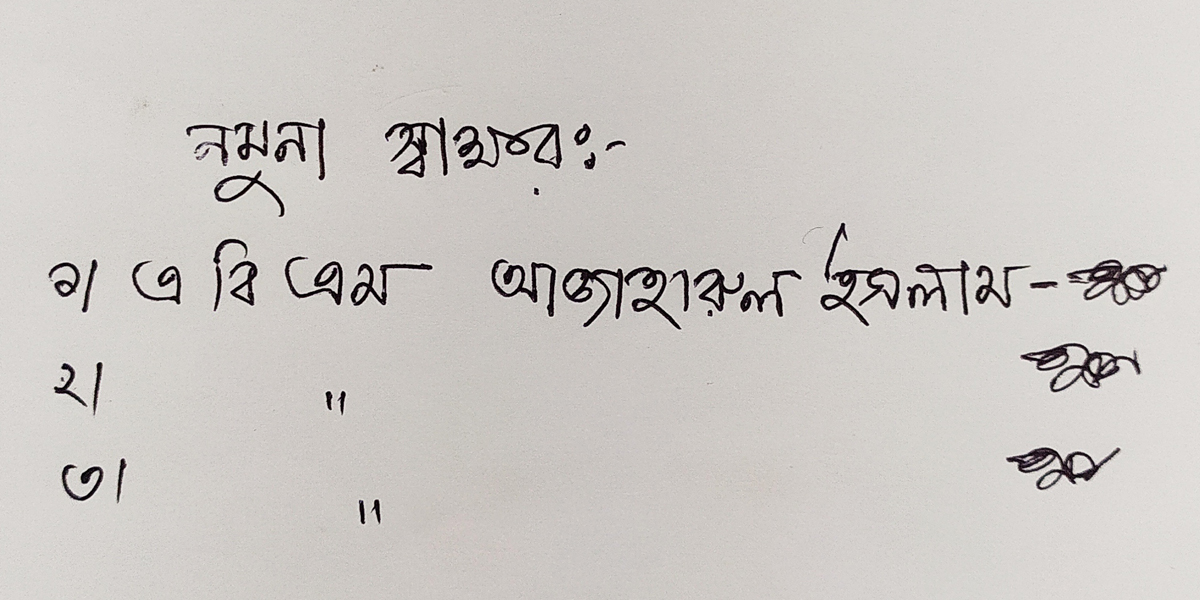 নমুনা স্বাক্ষরঃ-
১। এ বি এম আজাহারুল ইসলাম -
২। "
৩। "